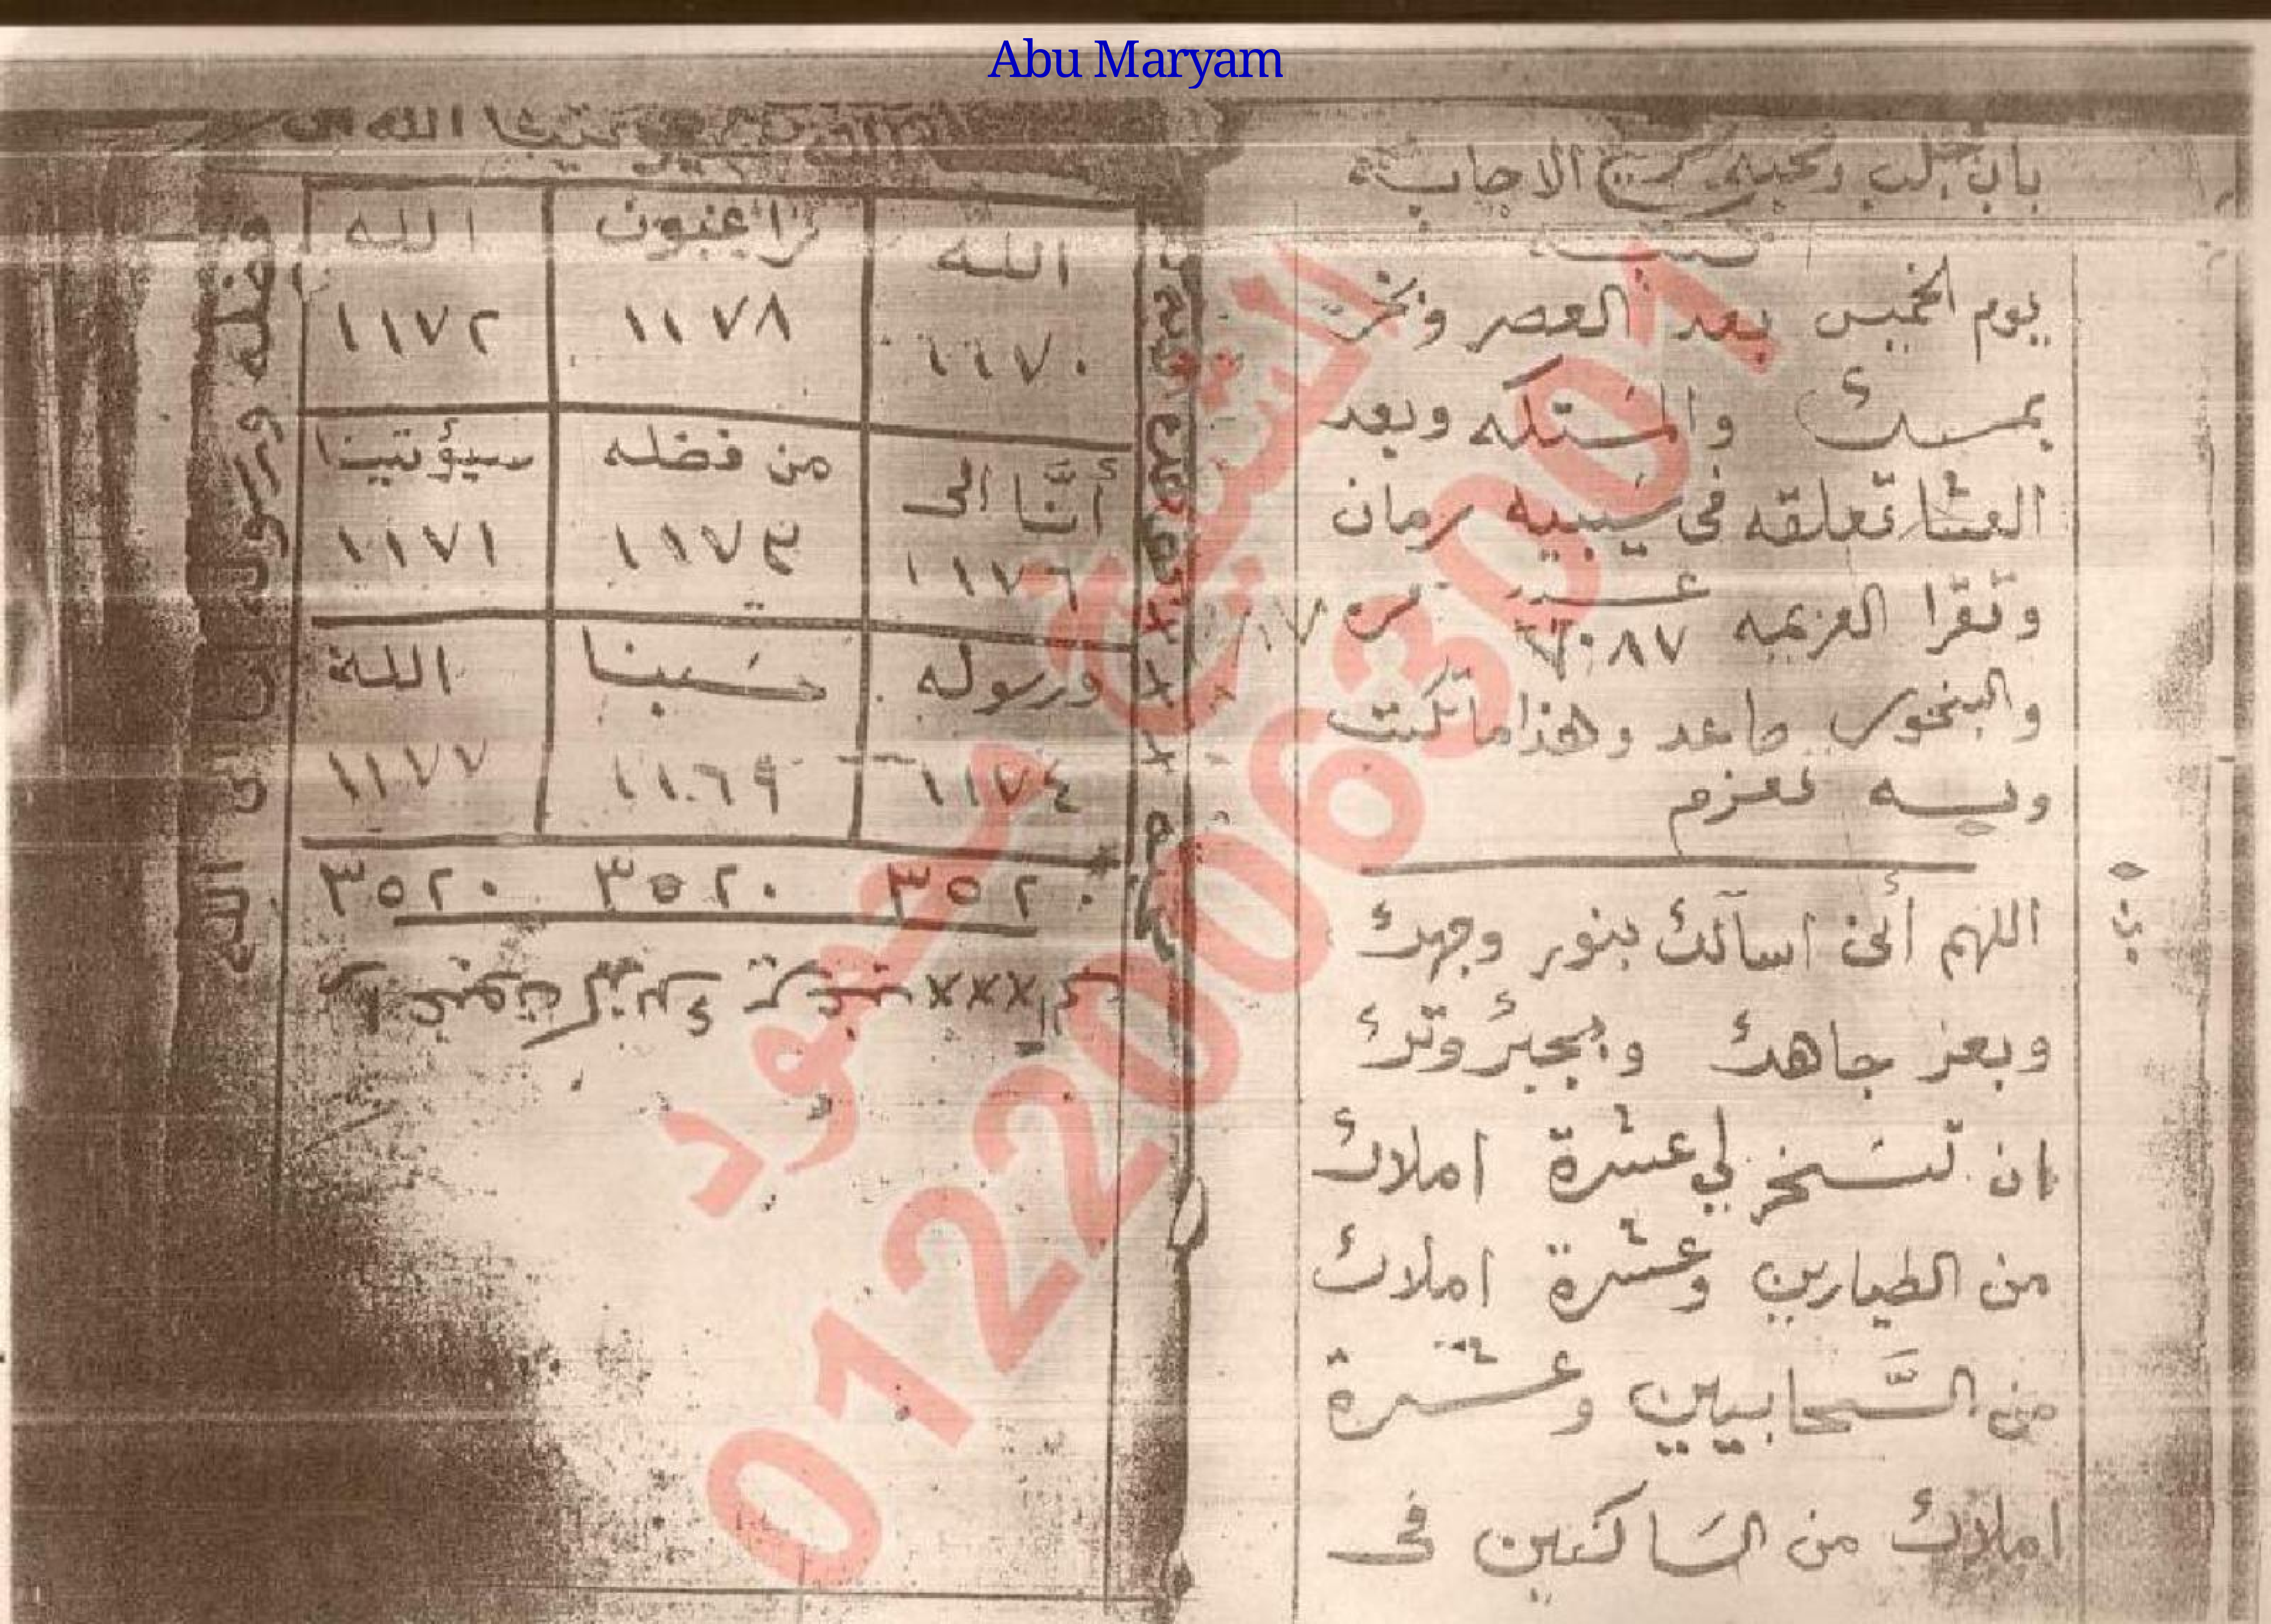 Abu Maryam
باب جلب ومحبه سريع الاجابه
تكتب
يوم الخميس بعد العصر وتبخر
بمسك والمستكه وبعد
العشا تعلقه فى سيبيه رمان
وتقرا العزيمه عدد
٢٠٨٧ مره
والبخور صاعد وهذا ما تكتب
وبه تعزم
اللهم أنى اسآلك بنور وجهك
وبعز جاهك وبجبروتك
ان تسخر لي عشرة املاك
من الطيارين وعشرة املاك
من السَّحابيين وعشرة
املاك من السَاكنين فى
الله راغبون الله
١١٧٠ ١١٧٨ ١١٧٢
أنَّا الى من فضله سيؤتينا
١١٧٦ ١١٧٣ ١١٧١
ورسوله حسَبنا الله
١١٧٤ ١١٦٩ ١١٧٧
٣٥٢٠ ٣٥٢٠ ٣٥٢٠
فضله ورسوله انا الى الله
الشيخ محمود
01220063001